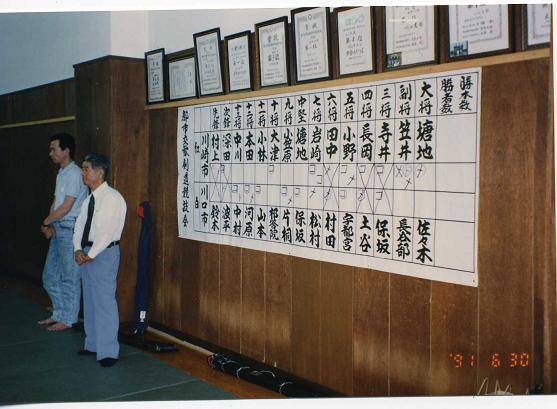 勝本数
勝者数
大将 塘地 佐々木
副将 笠井 長谷部
三将 寺井 保坂
四将 長岡 土谷
五将 小野 宇都宮
六将 田中 村田
七将 岩崎 松村
中堅 塘地 保坂
九将 小笠原 片桐
十将 大津 祁答院
十一将 小林 山本
十二将 本田 河原
十三将 中川 中村
次鋒 深田 波平
先鋒 村上 鈴木
紅 川崎市 白 川口市
都市交歓剣道競技会
'91 6 30